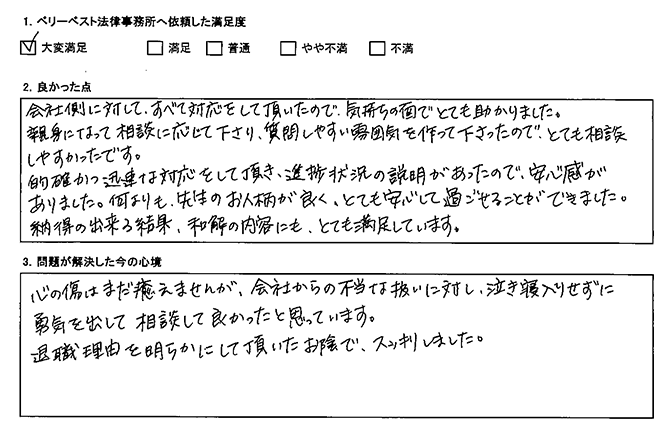 1. ベリーベスト法律事務所へ依頼した満足度
☑ 大変満足 □ 満足 □ 普通 □ やや不満 □ 不満
2. 良かった点
会社側に対して、すべて対応をして頂いたので、気持ちの面でとても助かりました。
親身になって相談に応じて下さり、質問しやすい雰囲気を作って下さったので、とても相談
しやすかったです。
的確かつ迅速な対応をして頂き、進捗状況の説明があったので、安心感が
ありました。何よりも、先生のお人柄が良く、とても安心して過ごせることができました。
納得の出来る結果、和解の内容にも、とても満足しています。
3. 問題が解決した今の心境
心の傷はまだ癒えませんが、会社からの不当な扱いに対し、泣き寝入りせずに
勇気を出して相談して良かったと思っています。
退職理由を明らかにして頂いたお陰で、スッキリしました。